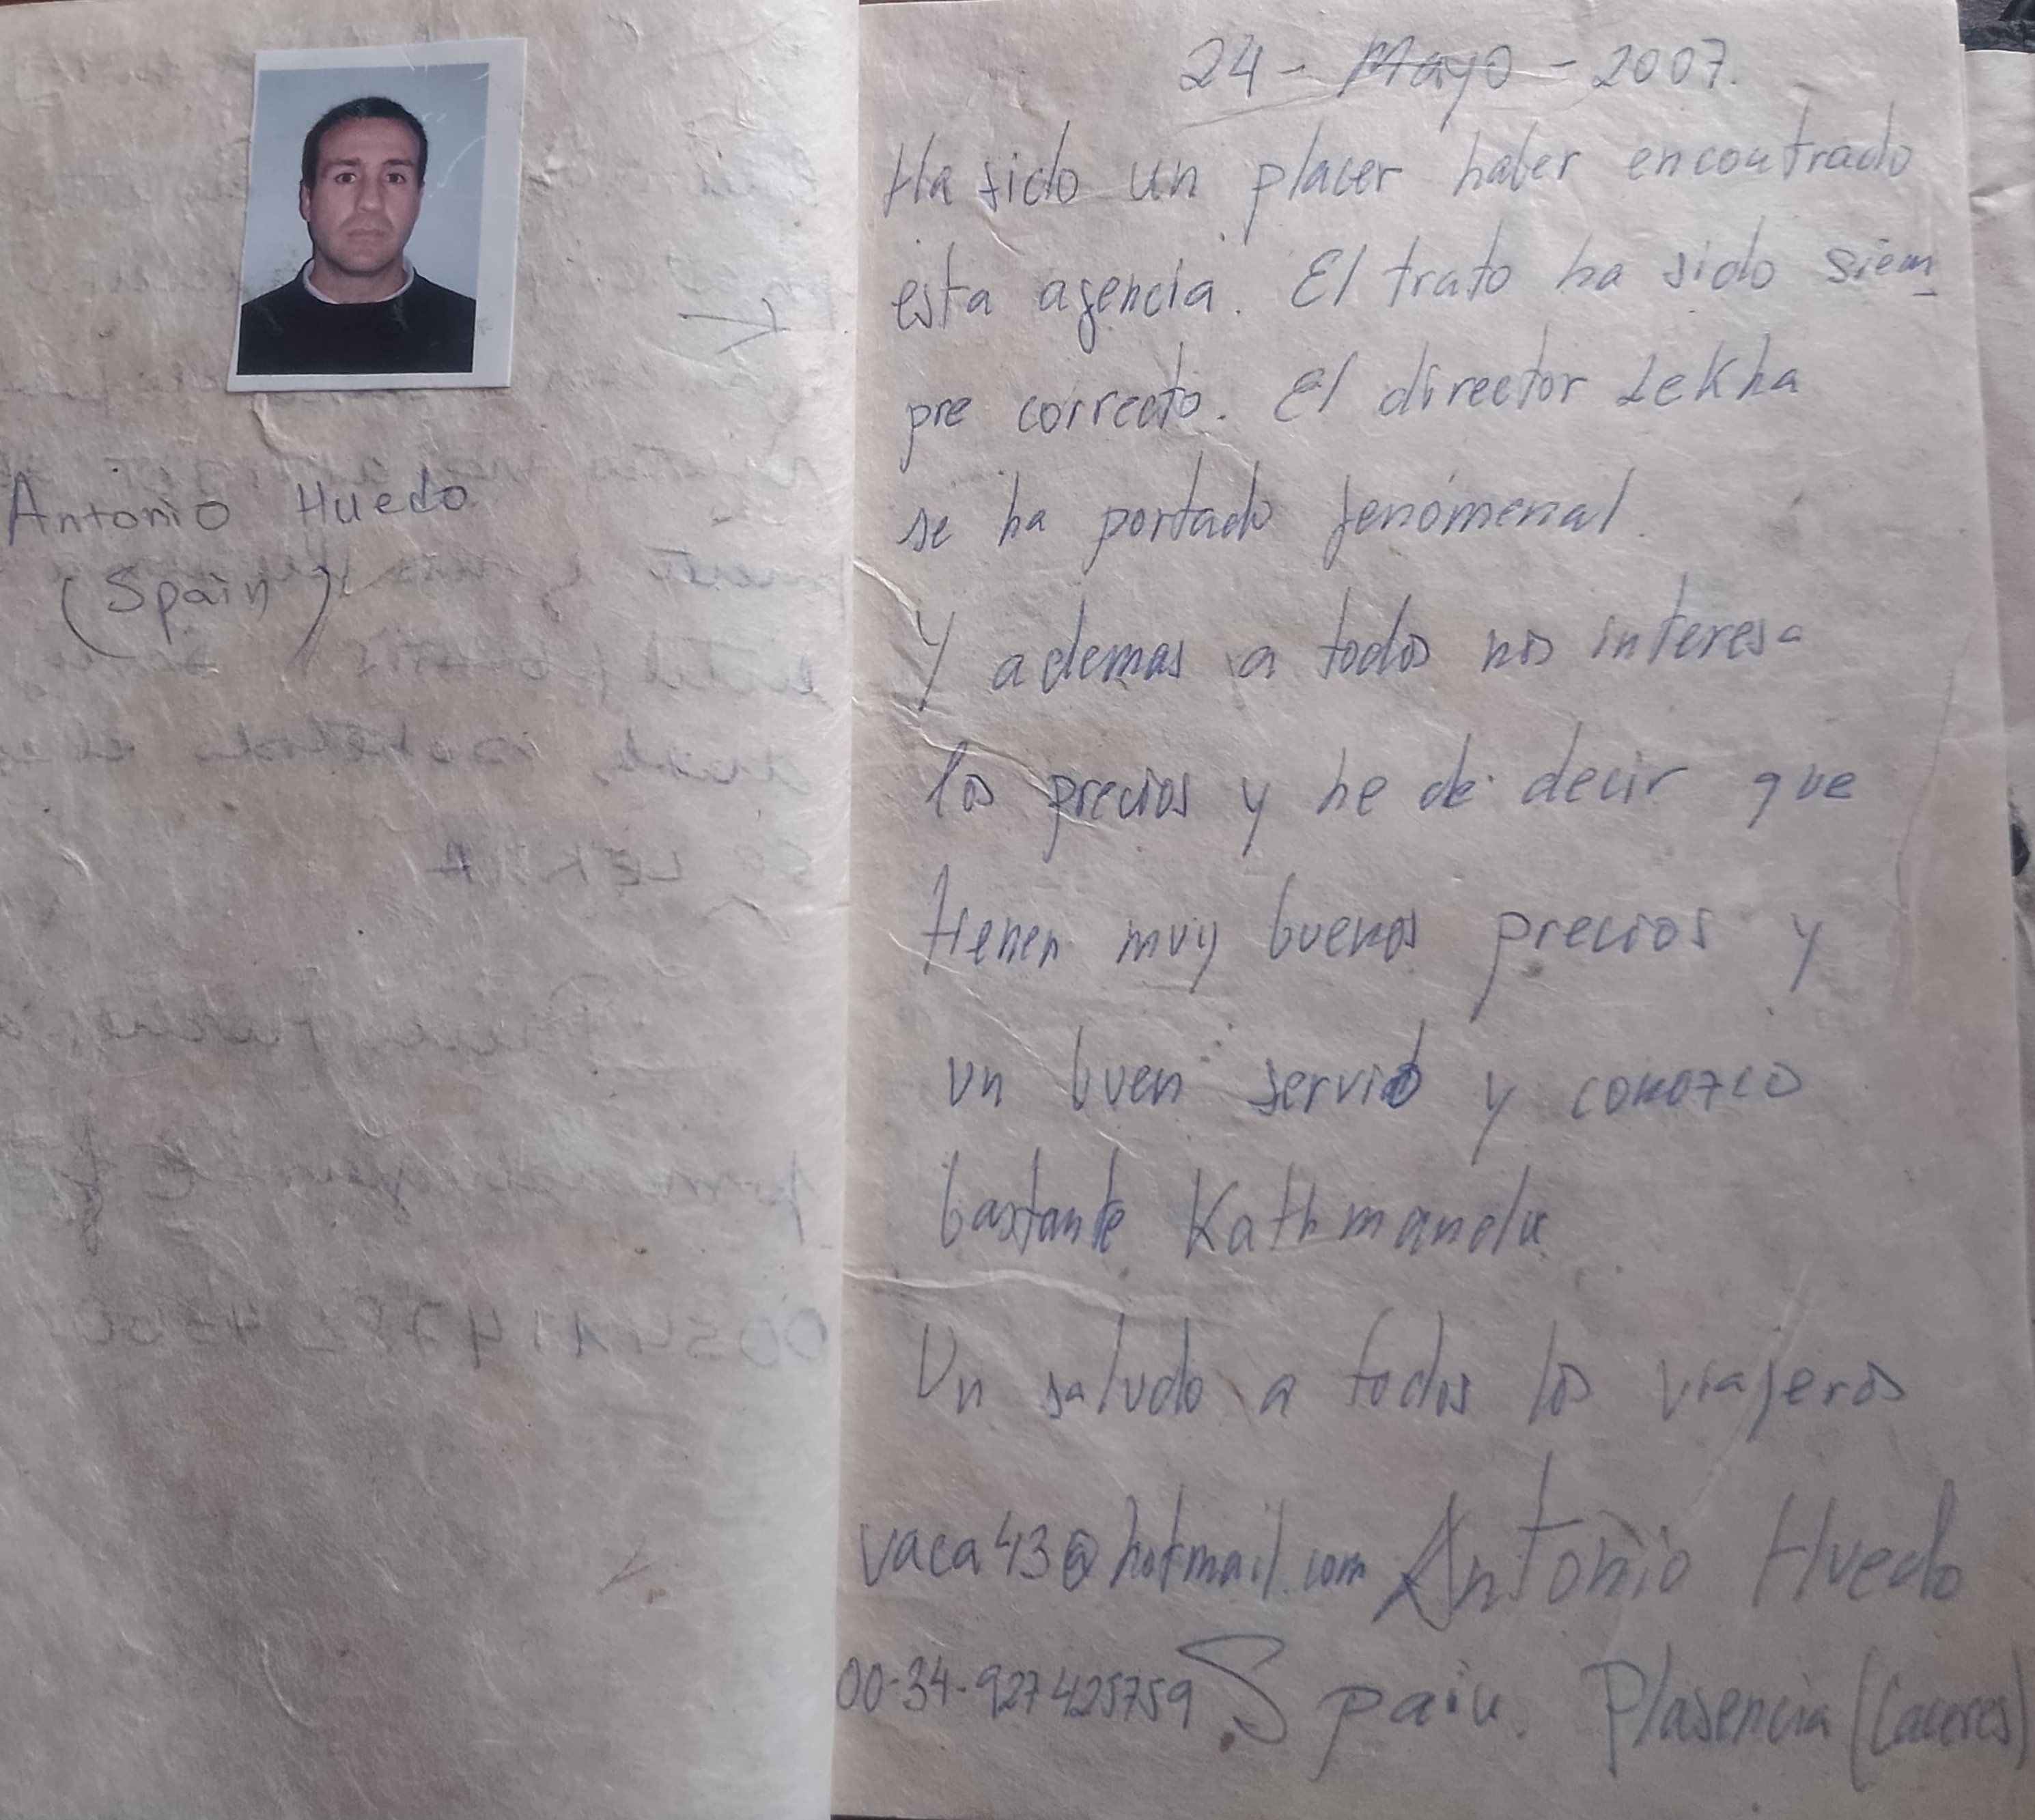 Antonio Huedo
(Spain)
24 - Mayo - 2007.
Ha sido un placer haber encontrado
esta agencia. El trato ha sido siem-
pre correcto. El director Lekha
se ha portado fenómenal.
Y ademas a todos nos interesa
los precios y he de decir que
tienen muy buenos precios y
un buen servicio y conozco
bastante Kathmandu.
Un saludo a todos los viajeros
vaca43@hotmail.com Antonio Huedo
00-34-927425759 Spain. Plasencia (Caceres)